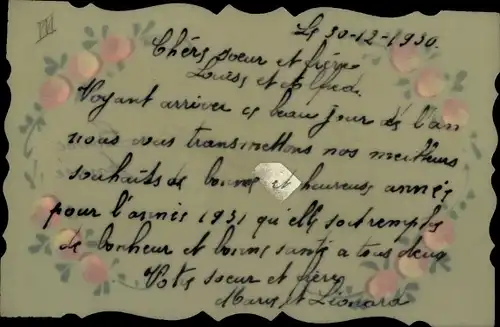 Le 30-12-1930.
Chérs soeur et frère
Louise et Alfred.
Voyant arriver ce beau jour de l'an
nous vous transmettons nos meilleurs
souhaits de bonne et heureuse année
pour l'année 1931 qu'elle soit remplie
de bonheur et bonne santé a tous deux
Votre soeur et frère
Marie et Léonard